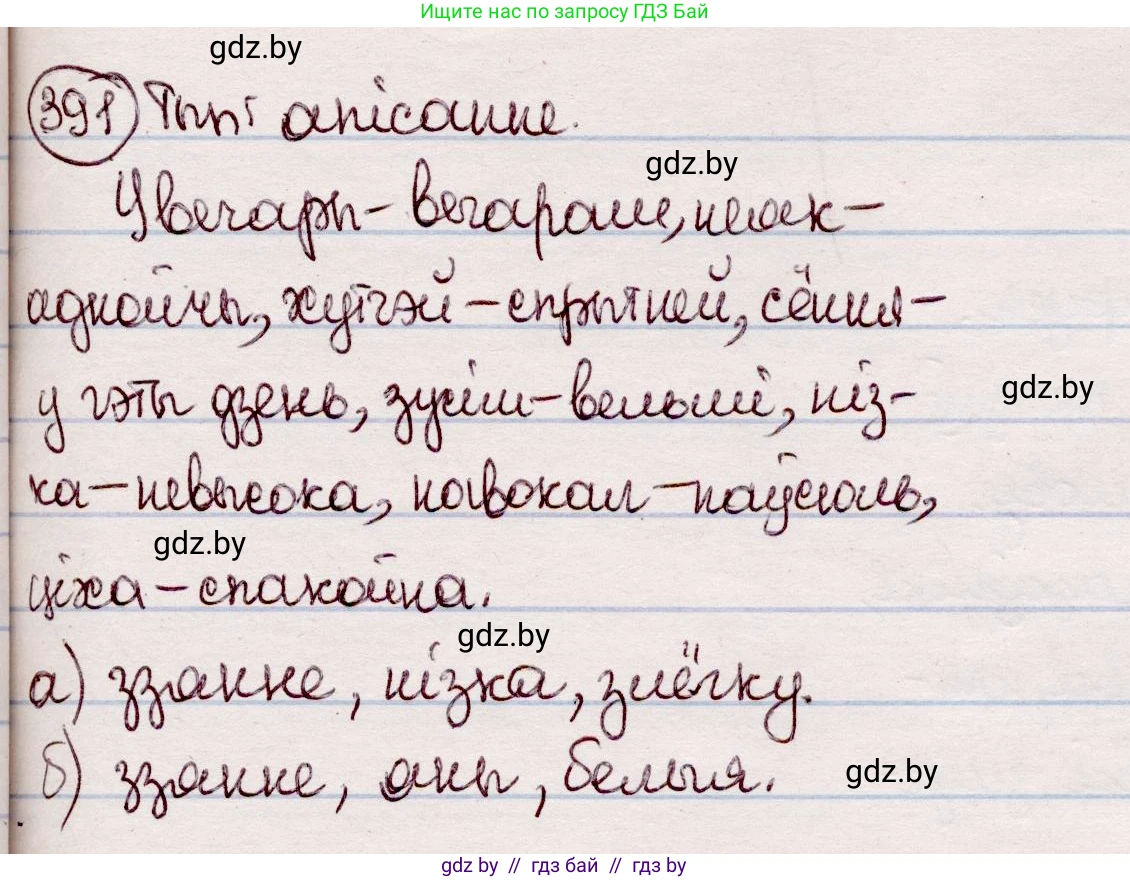 Ищите нас по запросу ГДЗ Бай
gdz.by
391 Тып: апісанне.
gdz.by
Увечары – вечарам, неяк –
аднойчы, хутчэй – спрытней, сёння –
у гэты дзень, зусім – вельмі, ніз-
gdz.by
ка – невысока, навокал – паўсюль,
gdz.by
ціха – спакойна.
gdz.by
а) ззанне, нізка, злёгку.
б) ззанне, яны, белыя.
gdz.by
gdz.by // гдз бай // гдз by